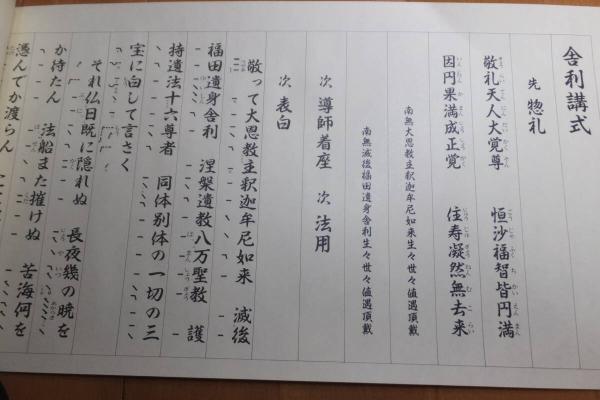 舎利講式
先 惣礼
敬礼天人大覚尊 恒沙福智皆円満
因円果満成正覚 住寿凝然無去来
南無大恩教主釈迦牟尼如来生々世々値遇頂戴
南無滅後福田遺身舎利生々世々値遇頂戴
次 導師着座 次 法用
次 表白
敬って大恩教主釈迦牟尼如来 滅後
福田遺身舎利 涅槃遺教八万聖教 護
持遺法十六尊者 同体別体の一切の三
宝に白して言さく
それ仏日既に隠れぬ 長夜幾の暁を
か待たん 法船また摧けぬ 苦海何を
憑んでか渡らん